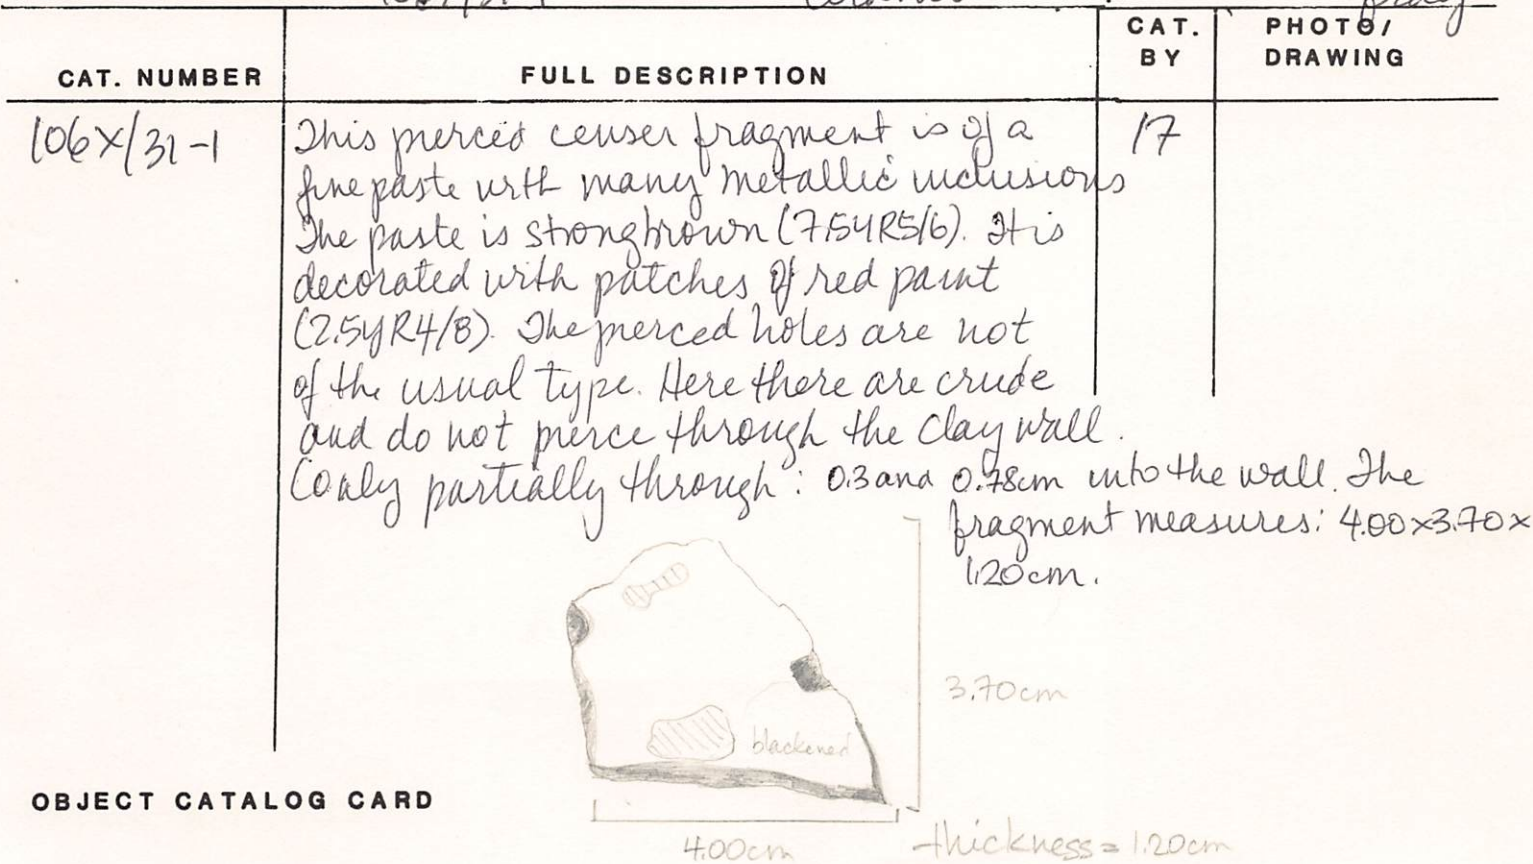 CAT. NUMBER
FULL DESCRIPTION
CAT. BY
PHOTO/ DRAWING
106X/31-1
17
This pierced censer fragment is of a
fine paste with many metallic inclusions
The paste is strong brown (7.5YR5/6). It is
decorated with patches of red paint
(2.5YR4/8). The pierced holes are not
of the usual type. Here there are crude
and do not pierce through the clay wall.
(only partially through: 0.3 and 0.78cm into the wall. The
fragment measures: 4.00x3.70x
1.20cm.
3.70cm
blackened
OBJECT CATALOG CARD
4.00cm
thickness = 1.20cm